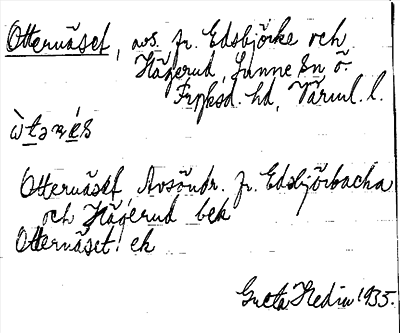 Otternäset, avs. fr. Edsbjörke och
Hägerud, Sunne sn ö.
Fryksd. hd, Värml. l.
Otternäset, Avsöndr. fr. Edsbjörbacha
och Hägerud bek
Otternäset: ek
Greta Hedin 1935.